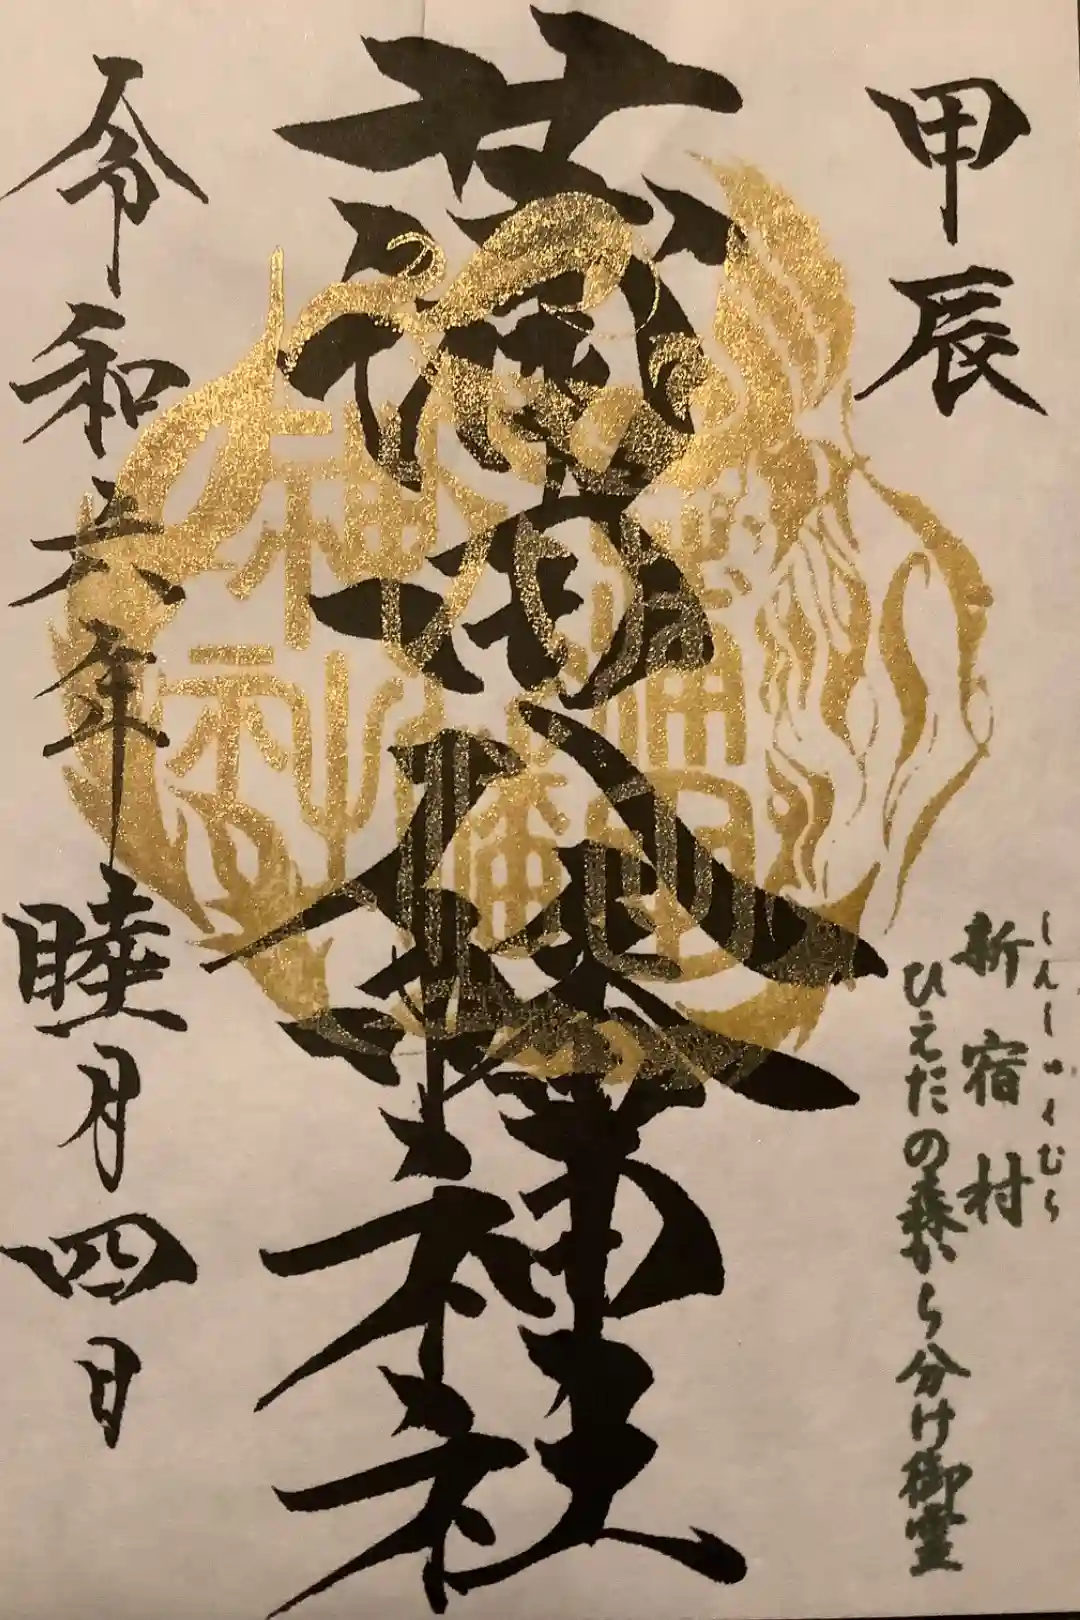 甲辰
しんしゅくむら
新宿村
ひえだの森から分け御霊
蒲田八幡神社
令和六年睦月四日